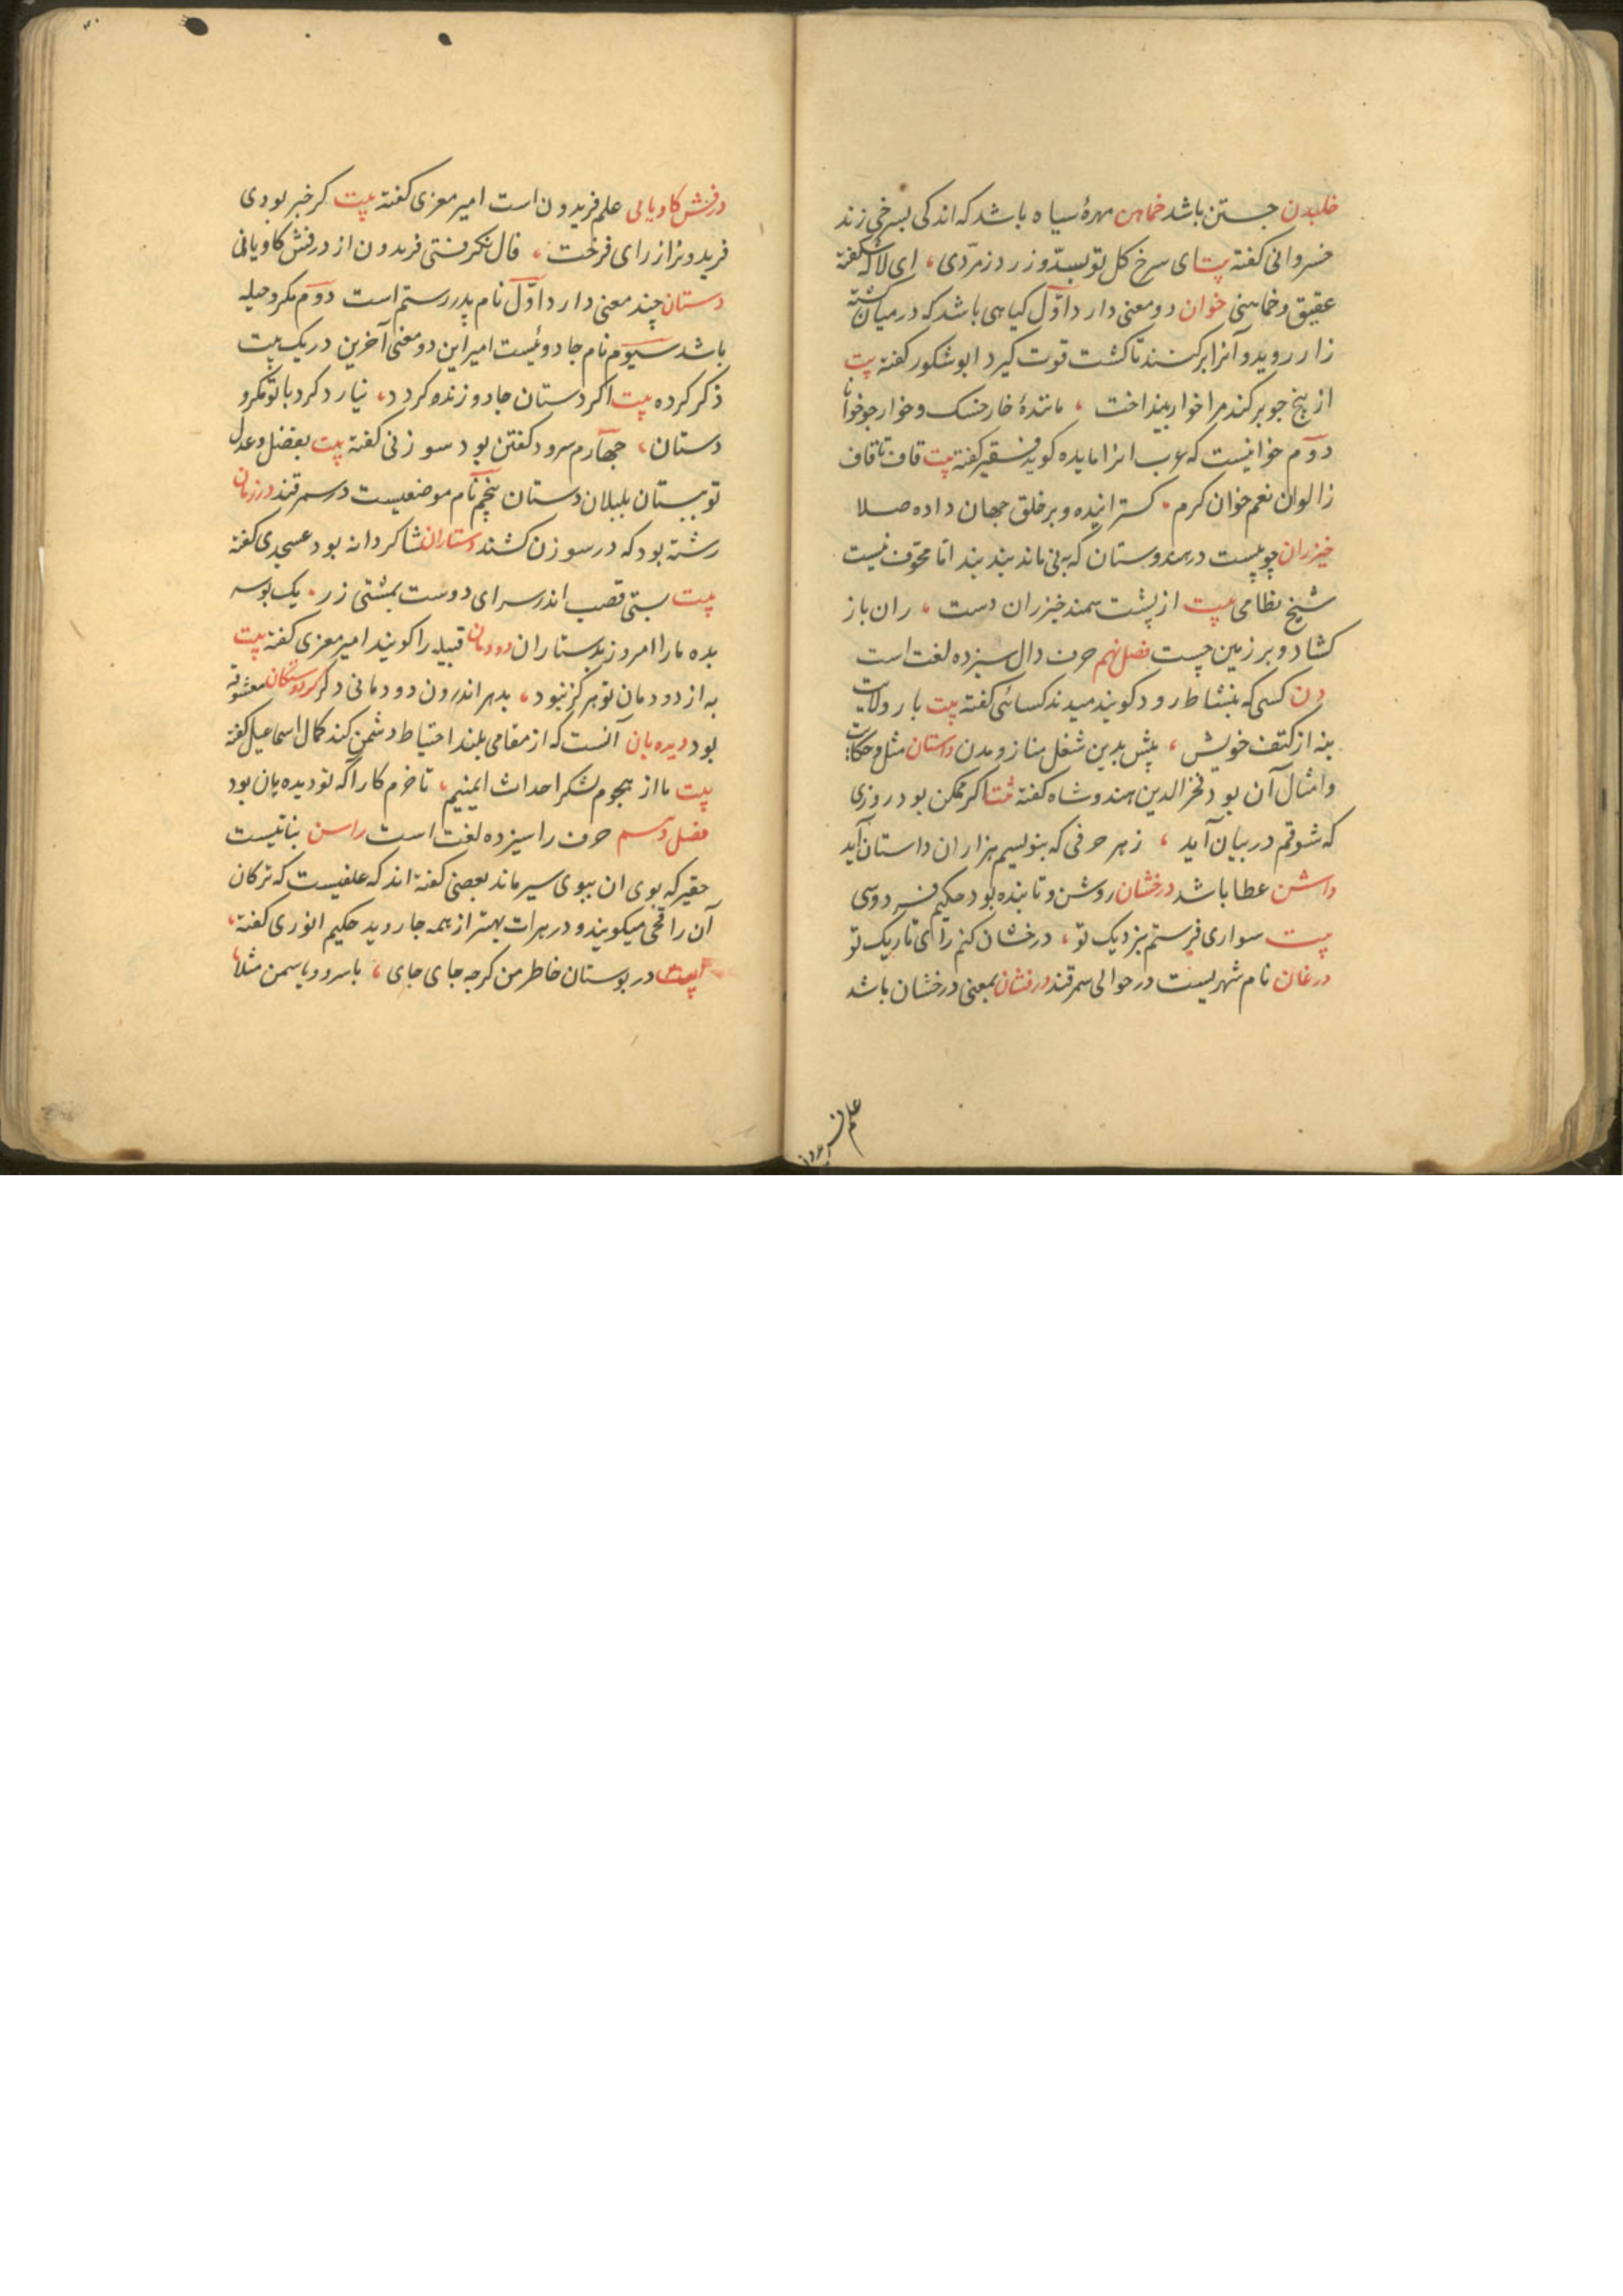 خلیدن جستن باشد خماهن مهرهٔ سیاه باشد که اندکی بسرخی زند
خسروانی کفته بیت ای سرخ کل تو بسدّ و زر و زمرّدی، ای لاله شکفته
عقیق و خماهنی خوان دو معنی دارد اوّل کیاهی باشد که در میان کشته
زار روید و آنرا برکنند تا کشت قوت کیرد ابوشکور کفته بیت
از بیخ جو برکند مرا خوار بینداخت، مانندهٔ خار خسک و خوار چو خوانا
دوّم خوانیست که عرب انرا مایده کوید فقیر کفته بیت قاف تا قاف
ز الوان نعم خوان کرم. کسترانیده و بر خلق جهان داده صلا
خیزران چوبیست در هندوستان که به نی ماند بند بند اما مجوّف نیست
شیخ نظامی بیت از پشت سمند خیزران دست، ران باز
کشاد و بر زمین جست فصل نهم حرف دال سیزده لغت است
دن کسی که بنشاط رود کویند میدند کسائی کفته بیت بار ولایت
بنه از کتف خویش، بیش بدین شغل مناز و مدن داستان مثل و حکایت
و امثال آن بود فخرالدین هندوشاه کفته بیت اکر ممکن بود روزی
که شوقم در بیان آید، ز هر حرفی که بنویسم هزاران داستان آید
داشن عطا باشد درخشان روشن و تابنده بود حکیم فردوسی
بیت سواری فرستم بنزدیک تو، درخشان کنم رای تاریک تو
درغان نام شهریست در حوالی سمرقند درفشان بمعنی درخشان باشد
علم فریدون
درفش کاویانی علم فریدون است امیر معزی کفته بیت کر خبر بودی
فریدونرا ز رای فرخت، فال نکرفتی فریدون از درفش کاویانی
دستان چند معنی دارد اوّل نام پدر رستم است دوّم مکر و حیله
باشد سیوّم نام جادوئیست امیر این دو معنی آخرین در یک بیت
ذکر کرده بیت اکر دستان جادو زنده کردد، نیارد کرد با تو مکر و
دستان، چهارم سرود کفتن بود سوزنی کفته بیت بفضل و عدل
تو ببستان بلبلان دستان پنجم نام موضعیست در سمرقند درزمان
رشته بود که در سوزن کشند دستاران شاکردانه بود عسجدی کفته
بیت بستی قصب اندر سر ای دوست بمشتی زر. یک بوسه
بده ما را امروز بدستاران دودمان قبیله را کویند امیر معزی کفته بیت
به از دودمان تو هرکز نبود، بدهر اندرون دودمانی دکر دوستکان معشوقه
بود دیده بان آنست که از مقامی بلند احتیاط دشمن کند کمال اسماعیل کفته
بیت ما از هجوم لشکر احداث ایمنیم، تا خرم کار آکه تو دیده بان بود
فصل دهم حرف را سیزده لغت است راسن نباتیست
حقیر که بوی ان ببوی سیر ماند بعضی کفته اند که علفیست که ترکان
آن را قچی میکویند و در هرات بهتر از همه جا روید حکیم انوری کفته،
بیت در بوستان خاطر من کرچه جای جای، با سرو و یاسمن مثلا